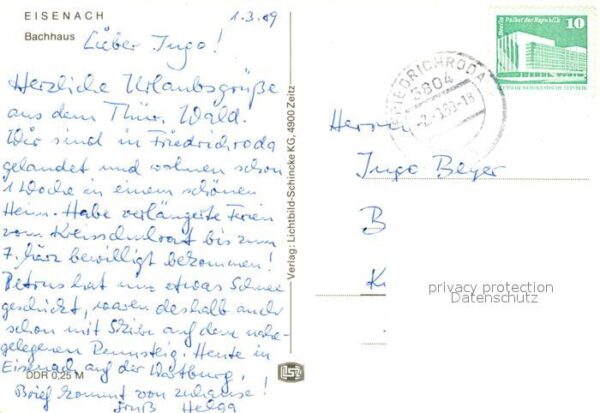 EISENACH
Bachhaus
1.3.89
Lieber Ingo!
Herzliche Urlaubsgrüße
aus dem Thür. Wald.
Wir sind in Friedrichroda
gelandet und wohnen schon
1 Woche in einem schönen
Heim. Habe verlängerte Ferien
vom Kreisschulrat bis zum
7. März bewilligt bekommen!
Petrus hat uns etwas Schnee
geschickt, waren deshalb auch
schon mit Skiern auf dem nahe-
gelegenen Rennsteig. Heute in
Eisenach auf der Wartburg.
DDR 0,25 M
Brief kommt von zuhause!
Gruß Helga
Verlag: Lichtbild-Schincke KG, 4900 Zeitz
FRIEDRICHRODA
5804
Berlin Palast der Republik
10
DEUTSCHE DEMOKRATISCHE REPUBLIK
Herrn
Ingo Beyer
B
K
privacy protection
Datenschutz